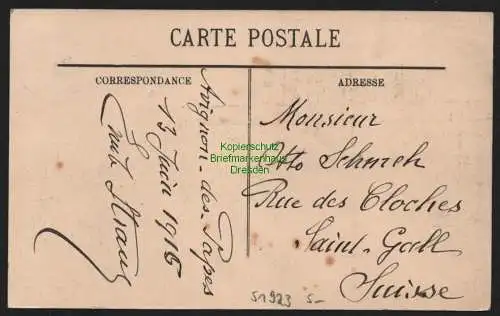 CARTE POSTALE
CORRESPONDANCE
Avignon-des-Papes
13 Juin 1916
Emil
ADRESSE
Monsieur
Otto Schmeh
Rue des Cloches
Saint-Gall
Suisse
Kopierschutz
Briefmarkenhaus
Dresden
51923 5-